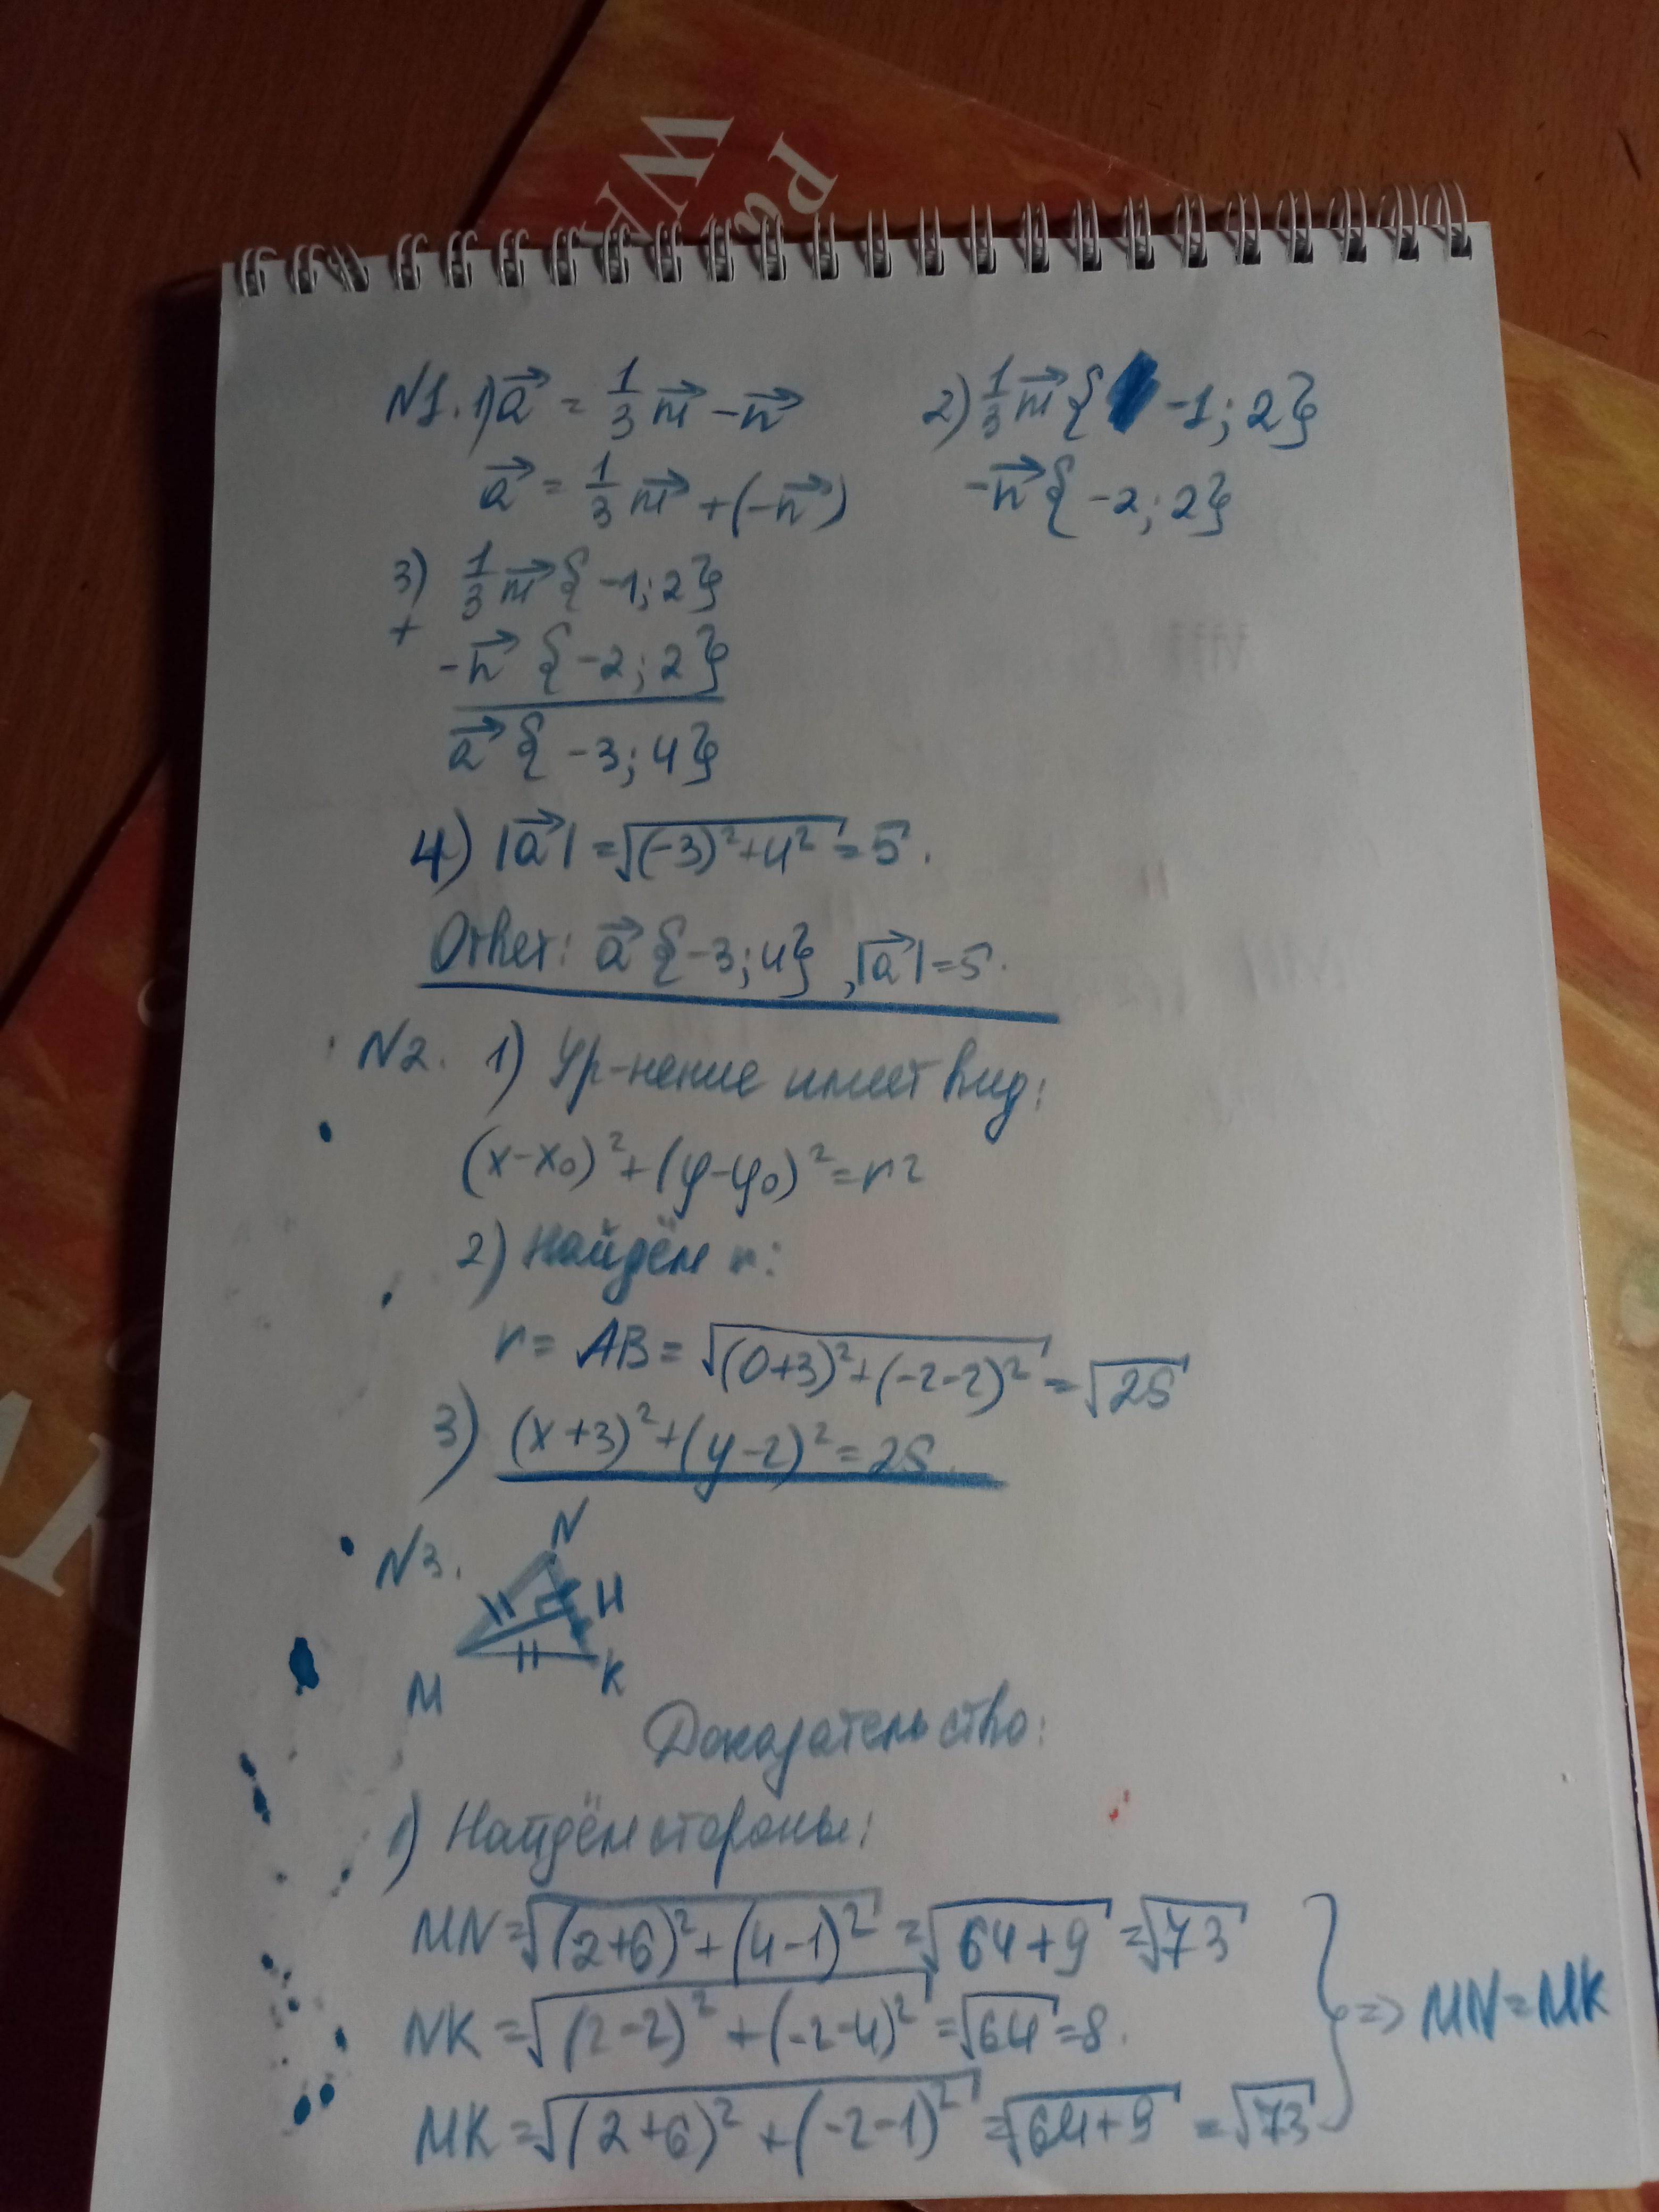 N1. 1) a⃗ = 1/3 m⃗ - n⃗
a⃗ = 1/3 m⃗ + (-n⃗)
2) 1/3 m⃗ { -1; 2}
-n⃗ { -2; 2}
3) 1/3 m⃗ { -1; 2}
+
-n⃗ { -2; 2}
a⃗ { -3; 4}
4) |a⃗| = √((-3)²+4²) = 5.
Ответ: a⃗ {-3; 4}, |a⃗| = 5.
N2. 1) Ур-нение имеет вид:
(x-x₀)² + (y-y₀)² = r²
2) Найдём r:
r = AB = √((0+3)²+(-2-2)²) = √25
3) (x+3)² + (y-2)² = 25.
N3.
N
H
M
K
Доказательство:
1) Найдём стороны:
MN = √((2+6)²+(4-1)²) = √(64+9) = √73
NK = √((2-2)²+(-2-4)²) = √64 = 8.
MK = √((2+6)²+(-2-1)²) = √(64+9) = √73
} => MN = MK